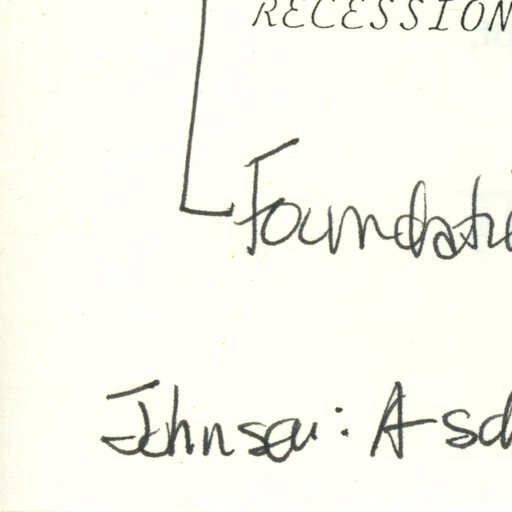 RECESSION
Foundatio
Johnson: A sch